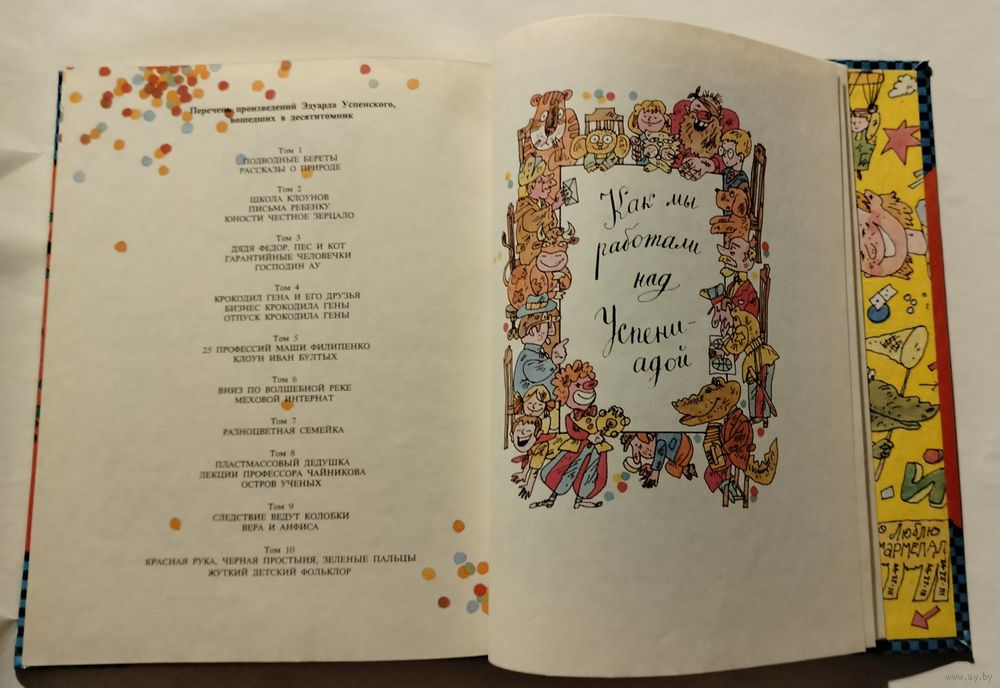 Перечень произведений Эдуарда Успенского,
вошедших в десятитомник
Том 1
ПОДВОДНЫЕ БЕРЕТЫ
РАССКАЗЫ О ПРИРОДЕ
Том 2
ШКОЛА КЛОУНОВ
ПИСЬМА РЕБЕНКУ
ЮНОСТИ ЧЕСТНОЕ ЗЕРЦАЛО
Том 3
ДЯДЯ ФЕДОР, ПЕС И КОТ
ГАРАНТИЙНЫЕ ЧЕЛОВЕЧКИ
ГОСПОДИН АУ
Том 4
КРОКОДИЛ ГЕНА И ЕГО ДРУЗЬЯ
БИЗНЕС КРОКОДИЛА ГЕНЫ
ОТПУСК КРОКОДИЛА ГЕНЫ
Том 5
25 ПРОФЕССИЙ МАШИ ФИЛИПЕНКО
КЛОУН ИВАН БУЛТЫХ
Том 6
ВНИЗ ПО ВОЛШЕБНОЙ РЕКЕ
МЕХОВОЙ ИНТЕРНАТ
Том 7
РАЗНОЦВЕТНАЯ СЕМЕЙКА
Том 8
ПЛАСТМАССОВЫЙ ДЕДУШКА
ЛЕКЦИИ ПРОФЕССОРА ЧАЙНИКОВА
ОСТРОВ УЧЕНЫХ
Том 9
СЛЕДСТВИЕ ВЕДУТ КОЛОБКИ
ВЕРА И АНФИСА
Том 10
КРАСНАЯ РУКА, ЧЕРНАЯ ПРОСТЫНЯ, ЗЕЛЕНЫЕ ПАЛЬЦЫ
ЖУТКИЙ ДЕТСКИЙ ФОЛЬКЛОР
Как мы
работали
над
Успени-
адой
Люблю
www.ay.by